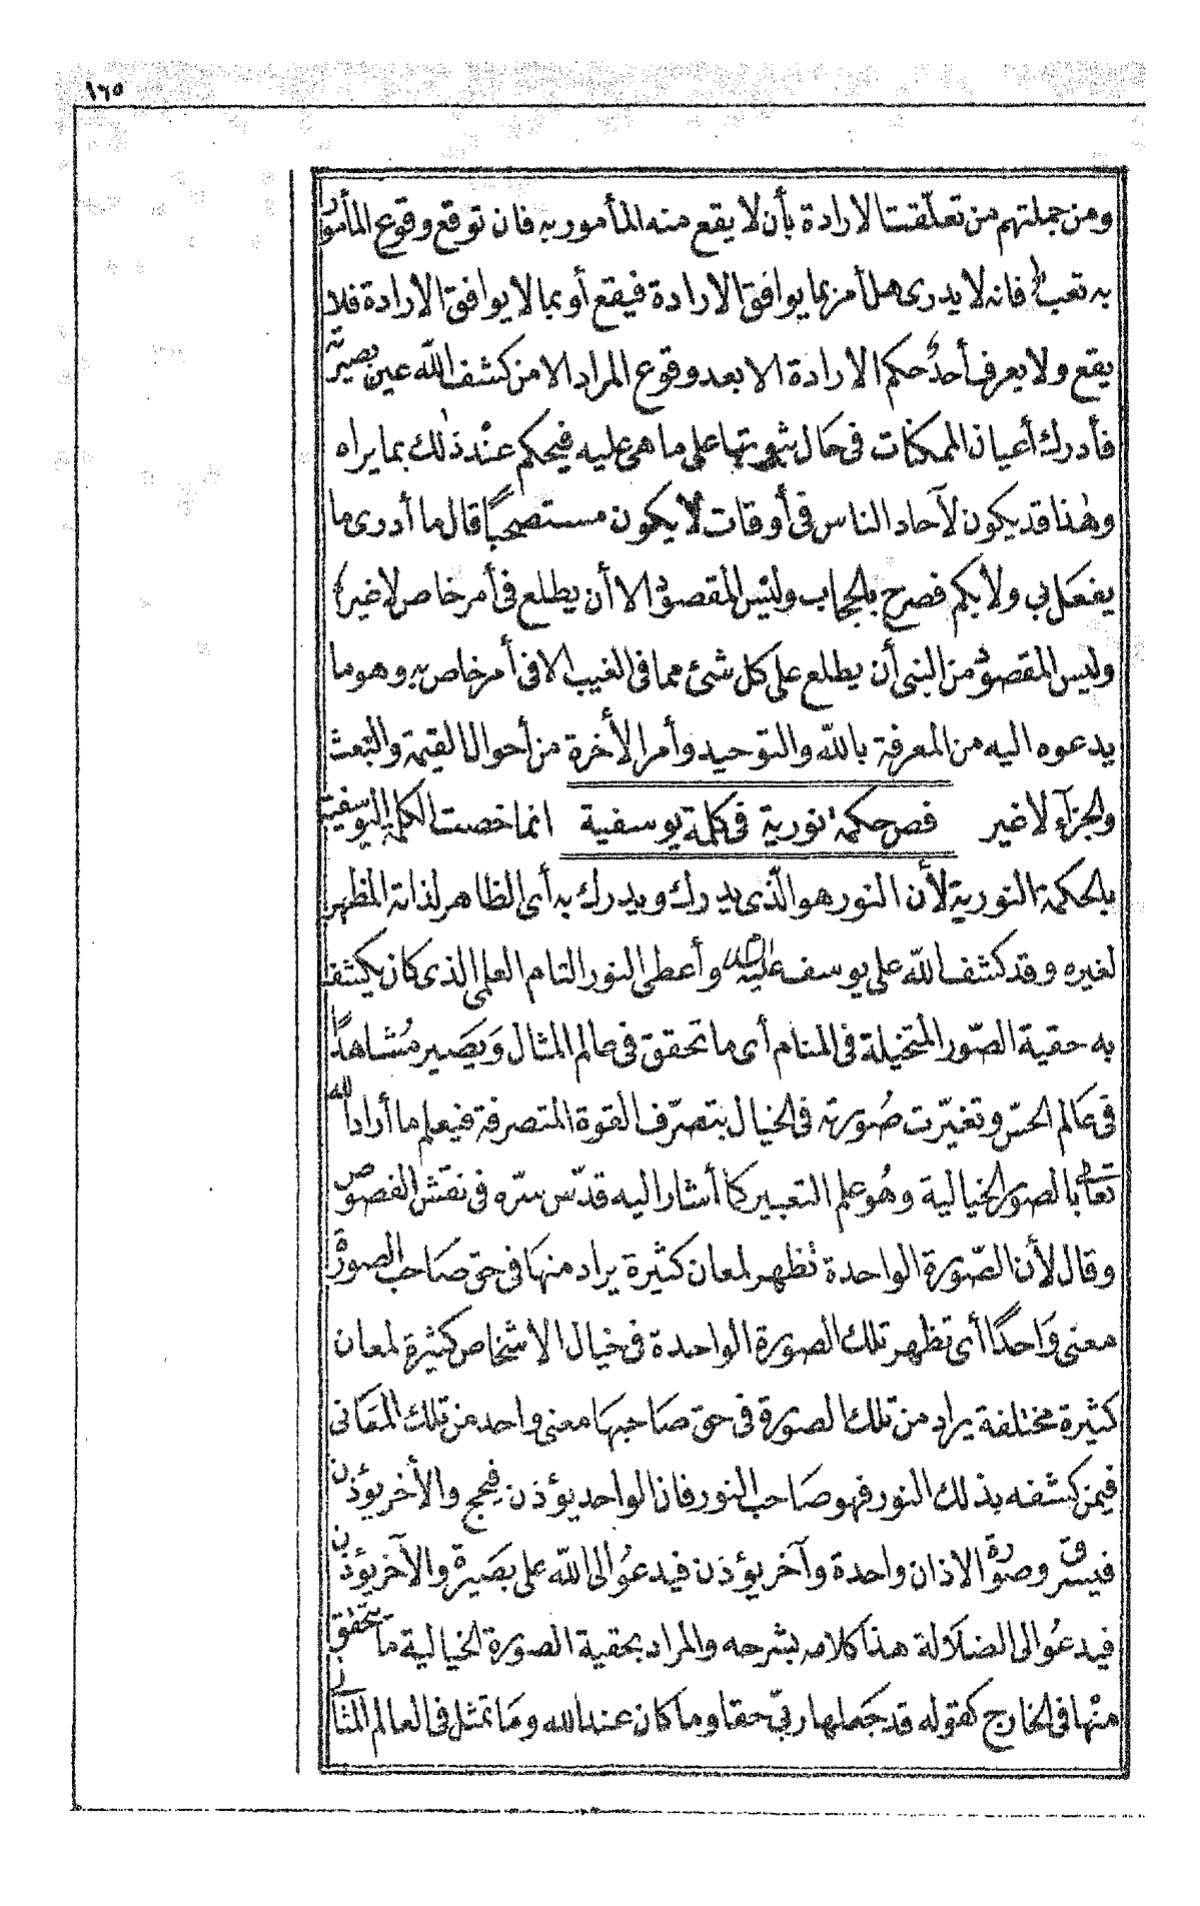 ١٦٥
ومن جملتهم من تعلّقت الارادة بأن لا يقع منه المأمور به فان توقع وقوع المأمور
به تعب فانه لا يدرى هل أمر بما يوافق الارادة فيقع أو بما لا يوافق الارادة فلا
يقع ولا يعرف أحدٌ حكم الارادة الا بعد وقوع المراد الا من كشف اللّه عين بصيرته
فأدرك أعيان الممكنات فى حال ثبوتها على ما هى عليه فيحكم عنْد ذٰلك بما يراه
وهٰذا قد يكون لآحاد الناس فى أوقات لا يكون مستصحبًا قال ما أدرى ما
يفعَل بي ولا بكم فصرح بالحجاب وليس المقصود الا أن يطلع فى أمر خاص لا غير
وليس المقصود من النبى أن يطلع على كل شئ مما فى الغيب الا فى أمر خاص به وهو ما
يدعوه اليه من المعرفة باللّه والتوحيد وأمر الأخرة من أحوال القيمة والبَعث
والجزآء لا غير فص حكمة نورية فى كلمة يوسفية انما خصت الكلمة اليوسفية
بالحكمة النورية لأن النور هو الّذى يدرك ويدرك به أى الظاهر لذاته المظهر
لغيره وقد كشف اللّه على يوسف عليه وأعطى النور التام العلمى الذى كان يكشف
به حقية الصّور المتخيلة فى المنام أى ما تحقق فى عالم المثال وَيَصَير مُشاهدًا
فى عَالم الحسّ وتغيّرت صُورته فى الخيال بتصرّف القوة المتصرفة فيعلم ما أراد الله
تعالى بالصور الخيالية وهُو علم التعبير كما أشار اليه قدّس سرّه فى نقش الفصوص
وقال لأن الصّورة الواحدة تظهر لمعان كثيرة يراد منهَا فى حق صَاحب الصورة
معنى وَاحدًا أى تظهر تلك الصورة الواحدة فى خيال الاشخاص كثيرة لمعان
كثيرة مختلفة يراد من تلك الصورة فى حق صَاحبهَا معنى واحد من تلك المَعَانى
فيمن كشفه بذلك النور فهو صَاحب النور فان الواحد يؤذن فيحج والأخر يؤذن
فيسرق وصورة الاذان واحدة وآخر يؤذن فيدعُو الى اللّه على بصَيرة والآخر يؤذن
فيدعُو الى الضلَالة هذا كلامه بشرحه والمراد بحقية الصورة الخيالية مَا تحقق
منْها فى الخارج كقوله قد جَعلها ربّي حقا وما كان عند الله ومَا تمثل فى العالم المثالى